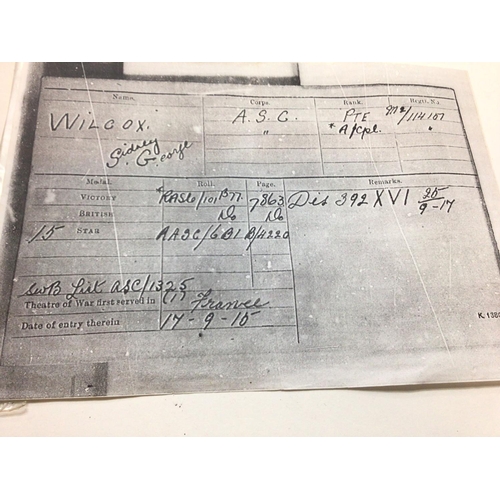 Name. Corps. Rank. Regtl. No.
WILCOX. A.S.C. PTE M2/114107
Sidney " *A/Cpl. "
George
Medal. Roll. Page. Remarks.
VICTORY *RASC/101 B77 7863 Dis 392 XVI 25/9-17
BRITISH Do Do
15 STAR AASC/6B1 B/4220
SWB List ASC/1325
Theatre of War first served in (1) France
Date of entry therein 17-9-15
K. 1380